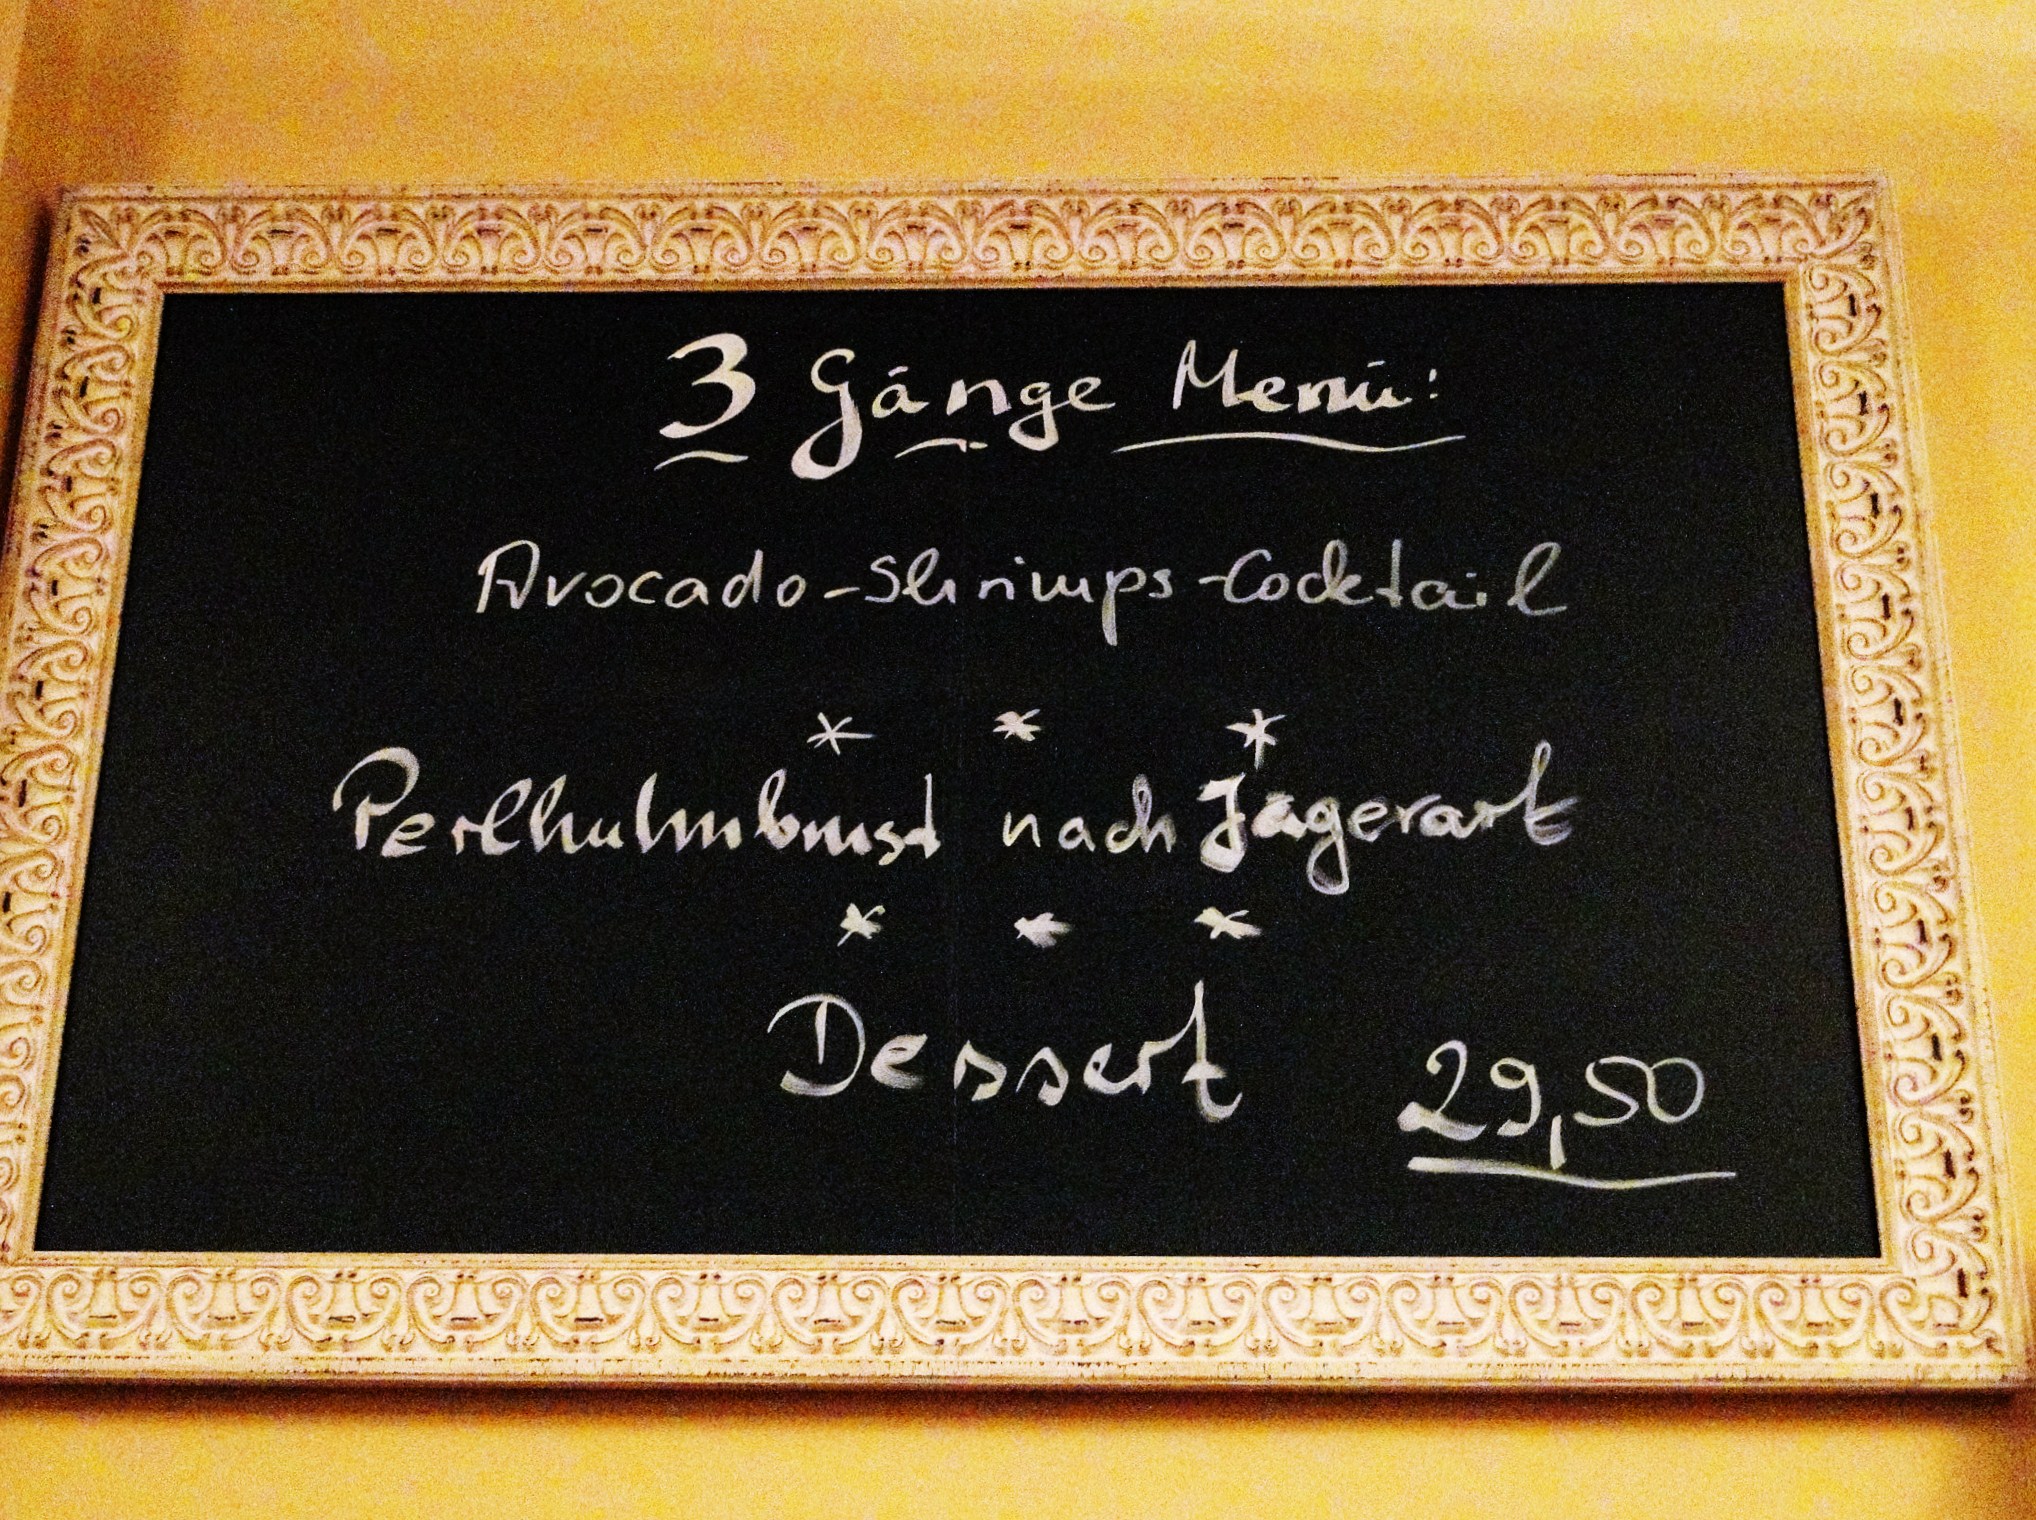 3 Gänge Menü:
Avocado-Shrimps-Cocktail
* * *
Perlhuhnbrust nach Jägerart
* * *
Dessert
29,50